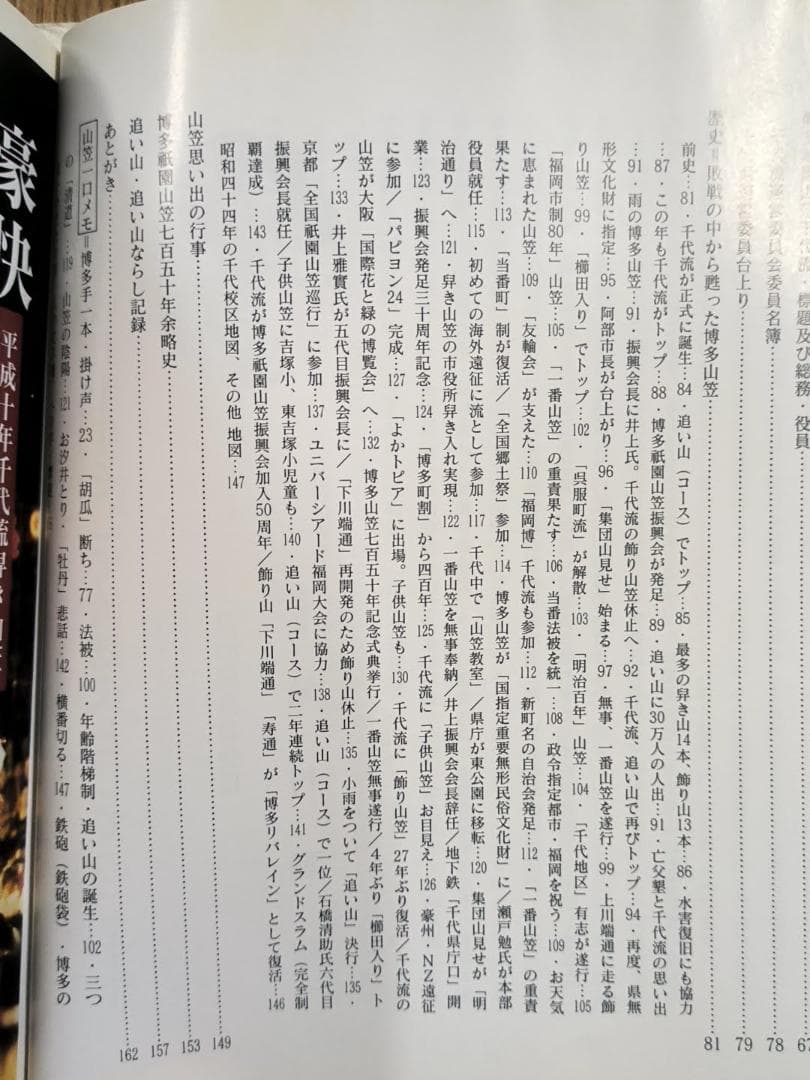 標題及び総務・役員 67
委員会委員名簿 78
委員台上り 79
歴史＝敗戦の中から甦った博多山笠 81
前史…81・千代流が正式に誕生…84・追い山（コース）でトップ…85・最多の舁き山14本、飾り山13本…86・水害復旧にも協力
…87・この年も千代流がトップ…88・博多祇園山笠振興会が発足…89・追い山に30万人の人出…91・亡父墾と千代流の思い出
…91・雨の博多山笠…91・振興会長に井上氏。千代流の飾り山笠休止へ…92・千代流、追い山で再びトップ…94・再度、県無
形文化財に指定…95・阿部市長が台上がり…96・「集団山見せ」始まる…97・無事、一番山笠を遂行…99・上川端通に走る飾
り山笠…99・「櫛田入り」でトップ…102・「呉服町流」が解散…103・「明治百年」山笠…104・「千代地区」有志が遂行…105
「福岡市制80年」山笠…105・「一番山笠」の重責果たす…106・当番法被を統一…108・政令指定都市・福岡を祝う…109・お天気
に恵まれた山笠…109・「友輪会」が支えた…110「福岡博」千代流も参加…112・新町名の自治会発足…112・「一番山笠」の重責
果たす…113・「当番町」制が復活／「全国郷土祭」参加…114・博多山笠が「国指定重要無形民俗文化財」に／瀬戸勉氏が本部
役員就任…115・初めての海外遠征に流として参加…117・千代中で「山笠教室」／県庁が東公園に移転…120・集団山見せが「明
治通り」へ…121・舁き山笠の市役所舁き入れ実現…122・一番山笠を無事奉納／井上振興会会長辞任／地下鉄「千代県庁口」開
業…123・振興会発足三十周年記念…124・「博多町割」から四百年…125・千代流に「子供山笠」お目見え…126・豪州・NZ遠征
に参加／「パピヨン24」完成…127・「よかトピア」に出場。子供山笠も…130・千代流に「飾り山笠」27年ぶり復活／千代流の
山笠が大阪「国際花と緑の博覧会」へ…132・博多山笠七百五十年記念式典挙行／一番山笠無事遂行／4年ぶり「櫛田入り」ト
ップ…133・井上雅實氏が五代目振興会長に／「下川端通」再開発のため飾り山休止…135・小雨をついて「追い山」決行…135・
京都「全国祇園山笠巡行」に参加…137・ユニバーシアード福岡大会に協力…138・追い山（コース）で一位／石橋清助氏六代目
振興会長就任／子供山笠に吉塚小、東吉塚小児童も…140・追い山（コース）で二年連続トップ…141・グランドスラム（完全制
覇達成）…143・千代流が博多祇園山笠振興会加入50周年／飾り山「下川端通」「寿通」が「博多リバレイン」として復活…146
昭和四十四年の千代校区地図、その他 地図…147
山笠思い出の行事 149
博多祇園山笠七百五十年余略史 153
追い山・追い山ならし記録 157
あとがき 162
山笠一口メモ＝博多手一本・掛け声…23・「胡瓜」断ち…77・法被…100・年齢階梯制・追い山の誕生…102・三つ
の「清道」…119・山笠の陰陽…121・お汐井とり・「牡丹」悲話…142・横番切る…147・鉄砲（鉄砲袋）・博多の
豪快
平成十年千代流舁き山笠